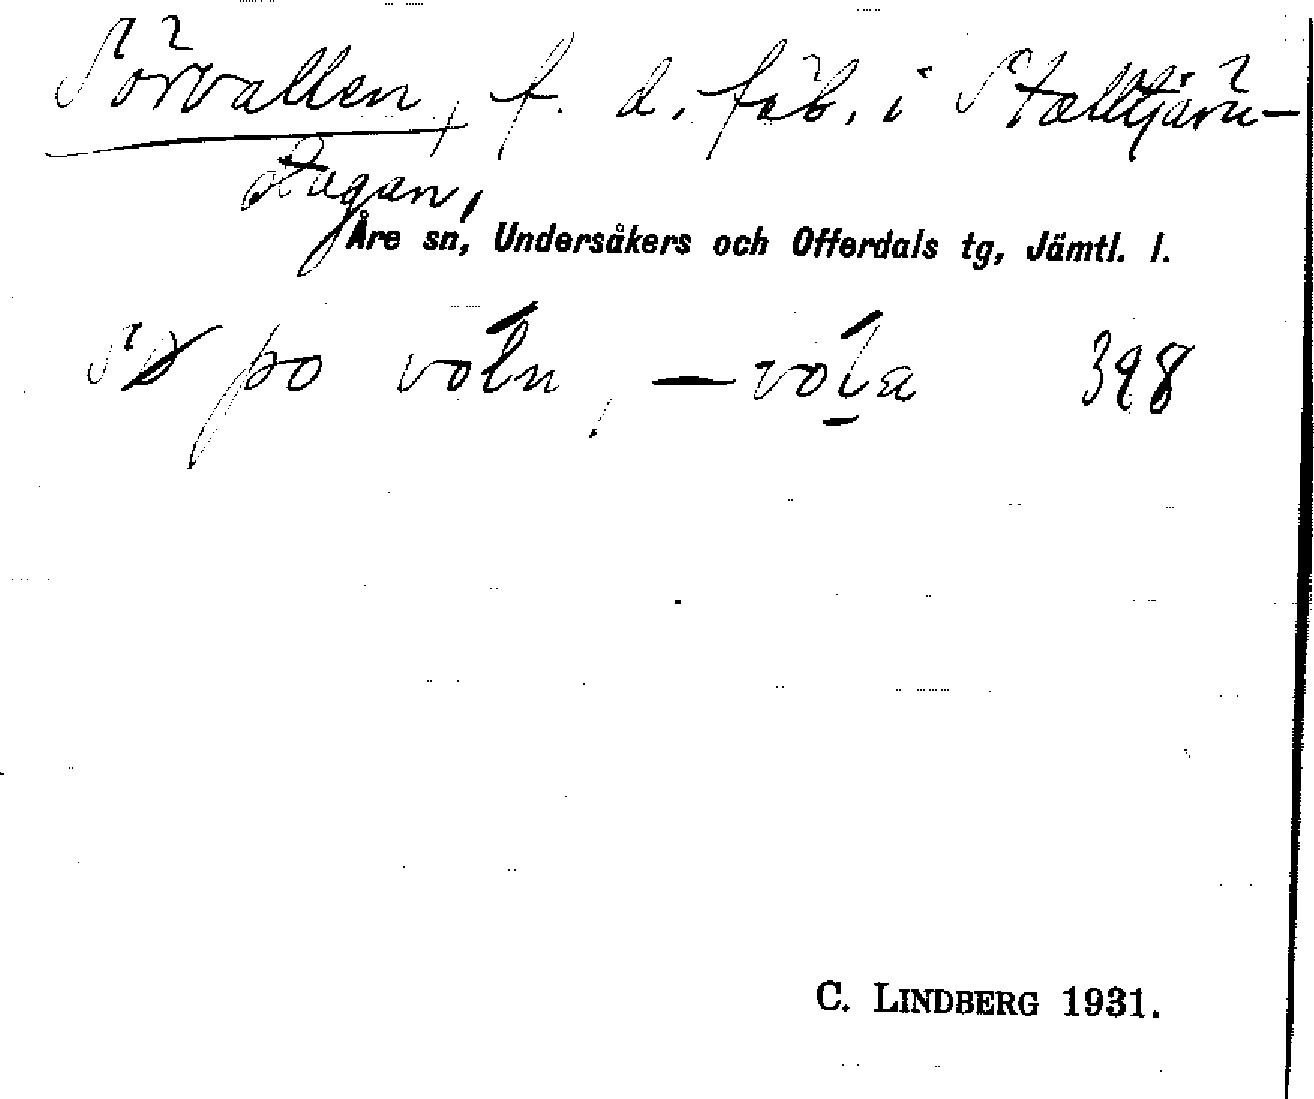 Sörvallen, f. d. fäb. i Stalltjärn-
stugan,
Åre sn, Undersåkers och Offerdals tg, Jämtl. l.
sø po voln, — vola 398
C. LINDBERG 1931.